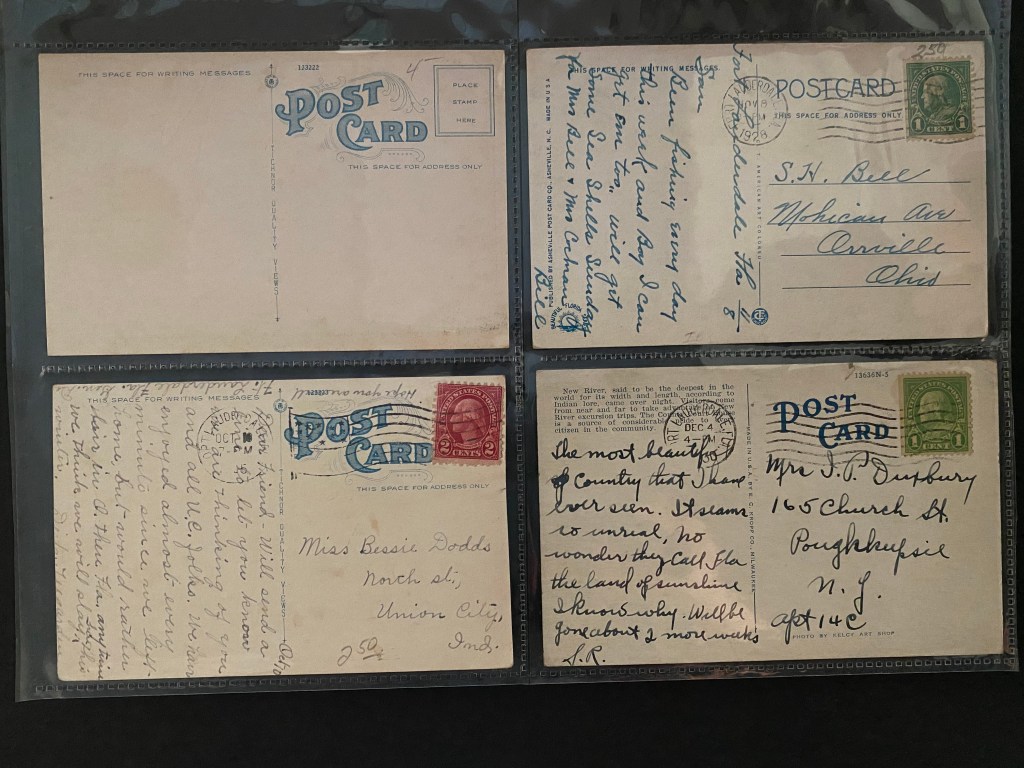 THIS SPACE FOR WRITING MESSAGES
123222
4
POST
CARD
PLACE
STAMP
HERE
THIS SPACE FOR ADDRESS ONLY
TICHNOR QUALITY VIEWS
250
THIS SPACE FOR WRITING MESSAGES
POSTCARD
THIS SPACE FOR ADDRESS ONLY
UNITED STATES POSTAGE
1 CENT 1
NOV 8
1928
Fort Lauderdale Fla
11/8
Been fishing every day
this week and Boy I can
get em too, will get
Some Sea Shells Sunday
for Mrs Bell & Mrs Cochran
Bill
S. H. Bell
Mohican Ave
Orrville
Ohio
MADE IN U.S.A.
PUBLISHED BY ASHEVILLE POST CARD CO., ASHEVILLE, N. C.
BEAUTIFUL FLORIDA
THIS SPACE FOR WRITING MESSAGES
POST
CARD
THIS SPACE FOR ADDRESS ONLY
UNITED STATES POSTAGE
2 CENTS 2
Hope you are well
Ft. Lauderdale Fla.
Dear Friend - Will send a
to let you know
we are thinking of you
and all U.C. folks. We have
enjoyed almost every
minute since we left
home but would rather
we think we will stay this
winter.
Miss Bessie Dodds
North st;
Union City,
Ind.
2 50
13636N-5
New River, said to be the deepest in the
world for its width and length, according to
Indian lore, came over night. Visitors come
from near and far to take
River excursion trips. The
is a source of considerable
citizen in the community.
POST
CARD
UNITED STATES POSTAGE
1 CENT 1
DEC 4
4-PM
The most beautiful
Country that I have
Ever seen. It seams
so unreal, No
wonder they Call Fla
the land of sunshine
I know why. Will be
gone about 2 more weeks
S.R.
MADE IN U.S.A. BY E. C. KROPP CO., MILWAUKEE
Mrs J. P. Duxbury
165 Church St.
Poughkupsie
N. Y.
apt 14C
PHOTO BY KELCY ART SHOP